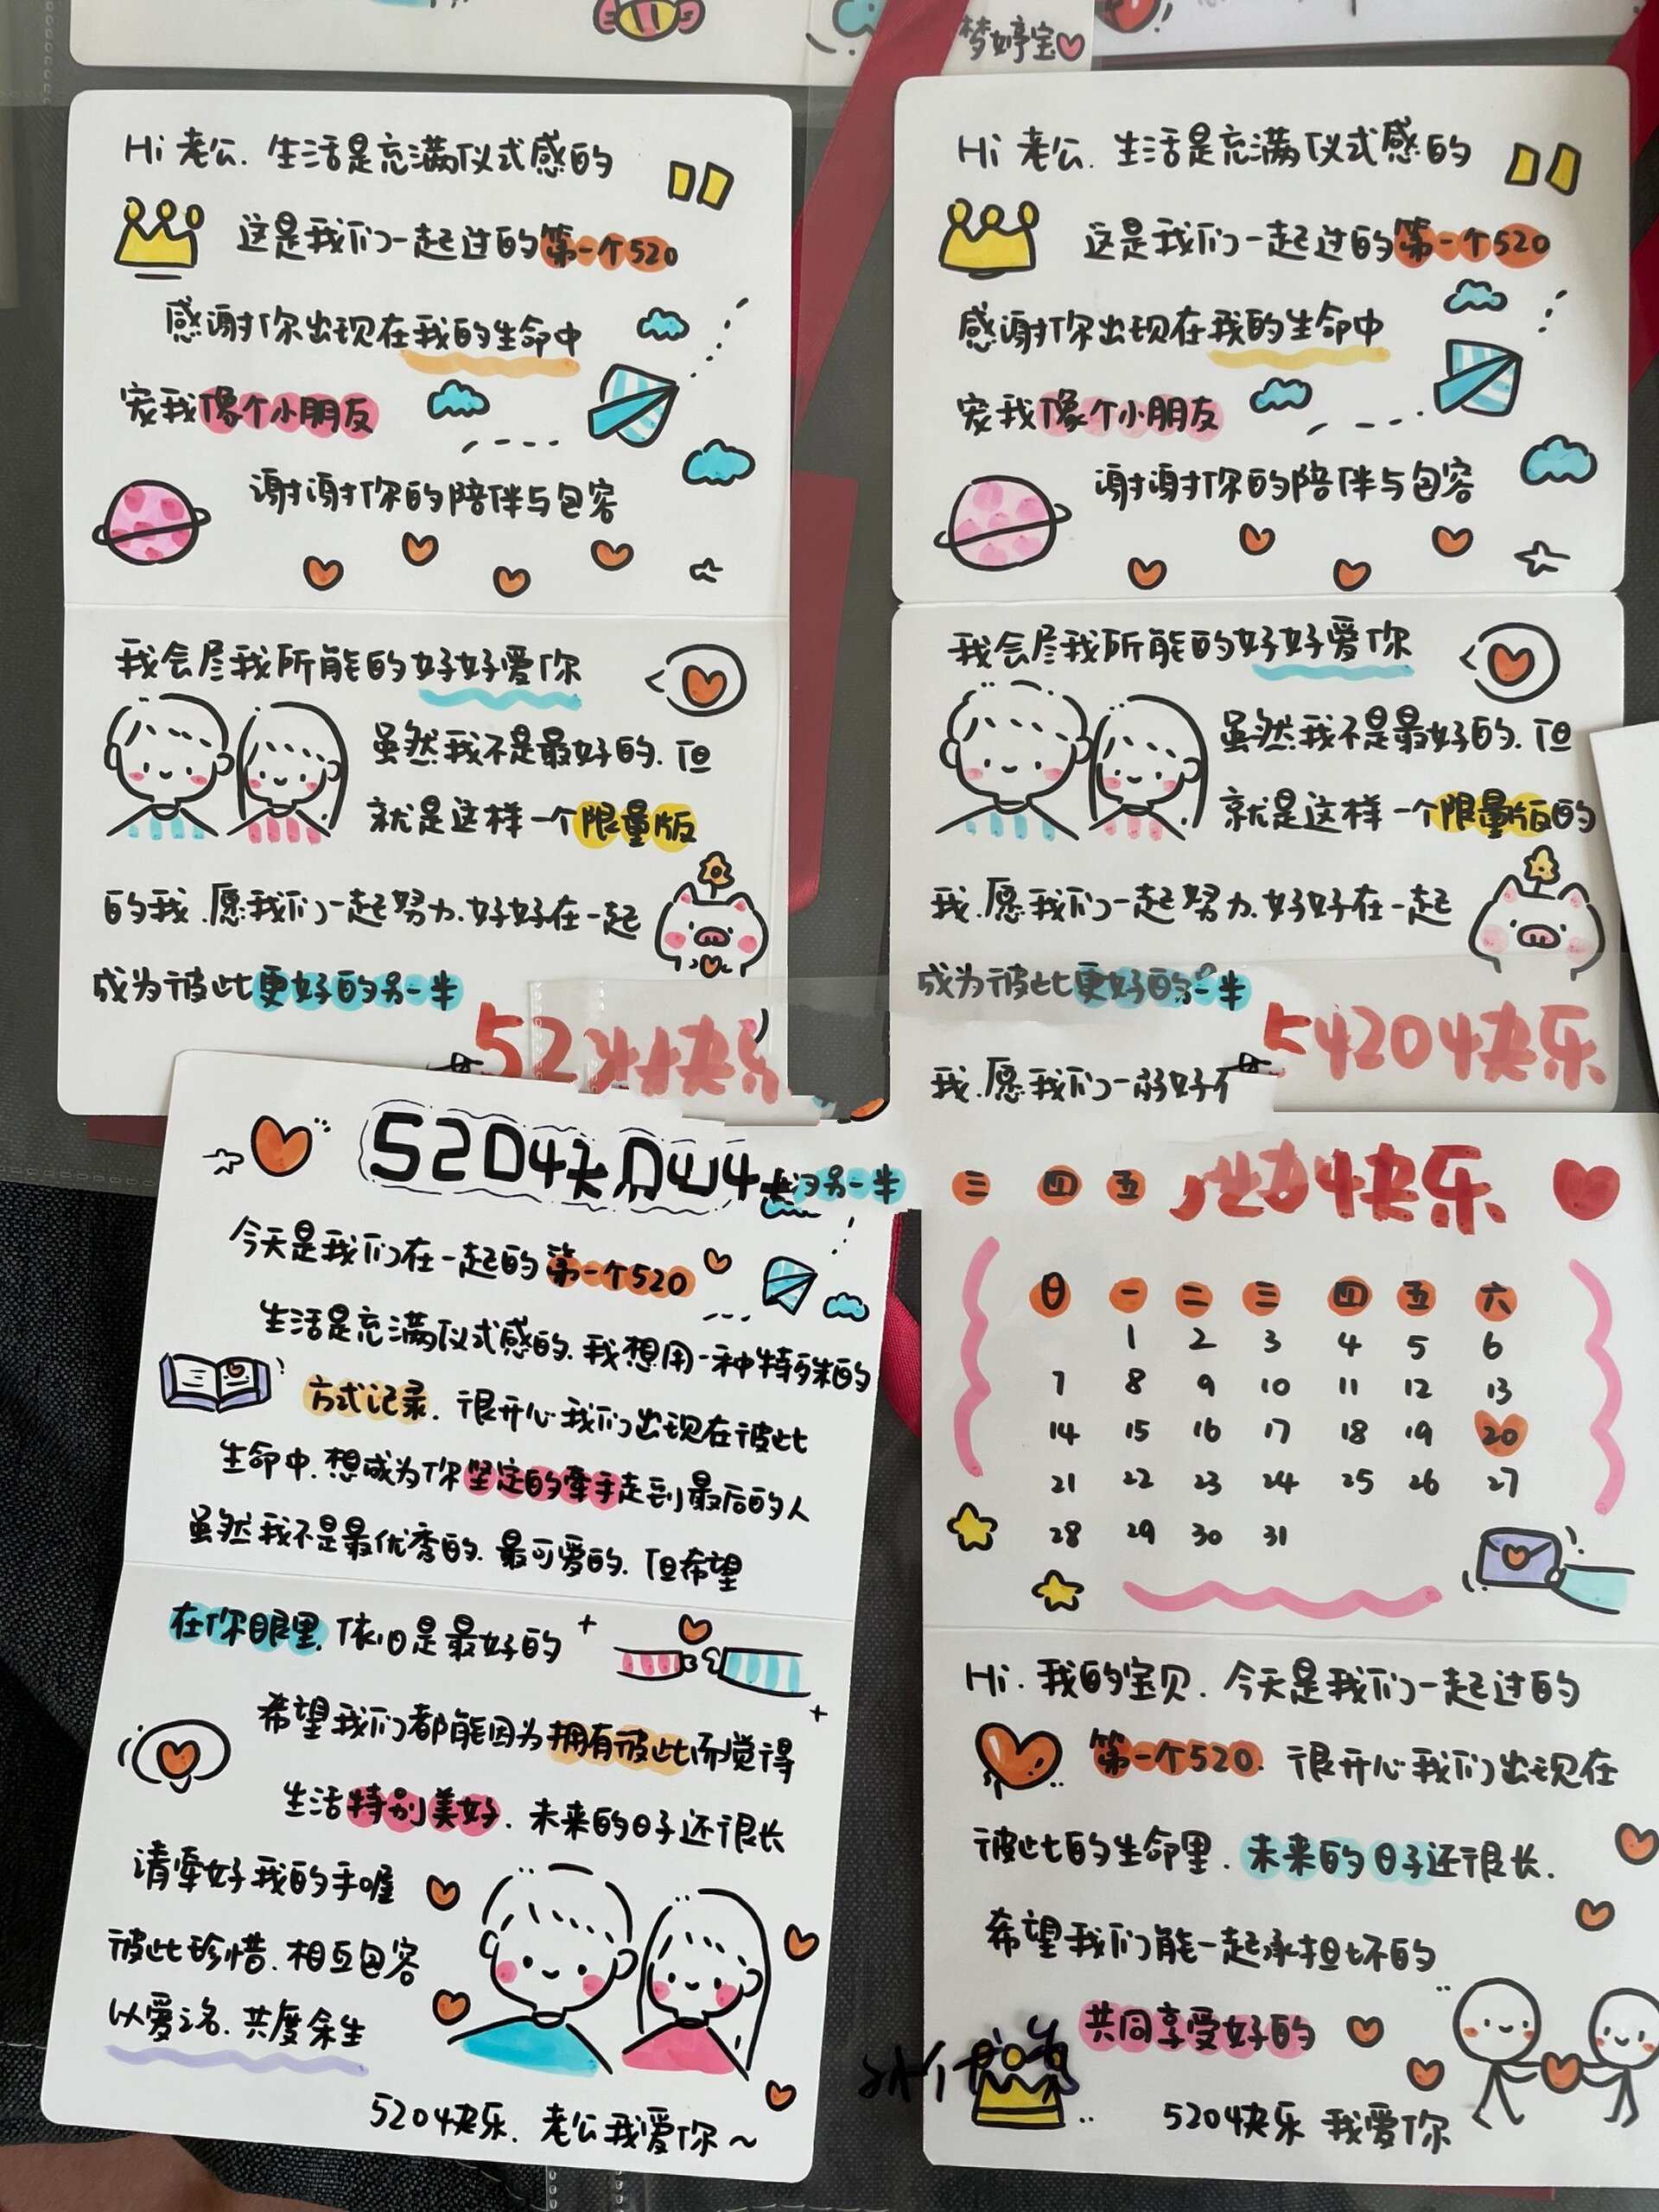 梦婷宝
Hi 老公. 生活是充满仪式感的
这是我们一起过的第一个520
感谢你出现在我的生命中
宠我像个小朋友
谢谢你的陪伴与包容
我会尽我所能的好好爱你
虽然我不是最好的. 但
就是这样一个限量版
的我. 愿我们一起努力. 好好在一起
成为彼此更好的另一半
Hi 老公. 生活是充满仪式感的
这是我们一起过的第一个520
感谢你出现在我的生命中
宠我像个小朋友
谢谢你的陪伴与包容
我会尽我所能的好好爱你
虽然我不是最好的. 但
就是这样一个限量版的
我. 愿我们一起努力. 好好在一起
成为彼此更好的另一半
54204快乐
我. 愿我们一
另一半
今天是我们在一起的第一个520
生活是充满仪式感的. 我想用一种特殊的
方式记录. 很开心我们出现在彼此
生命中. 想成为你坚定的牵手走到最后的人
虽然我不是最优秀的. 最可爱的. 但希望
在你眼里. 依旧是最好的
希望我们都能因为拥有彼此而觉得
生活特别美好. 未来的日子还很长
请牵好我的手喔
彼此珍惜. 相互包容
以爱之名. 共度余生
5204快乐. 老公我爱你~
三 四 五
快乐
日 一 二 三 四 五 六
1 2 3 4 5 6
7 8 9 10 11 12 13
14 15 16 17 18 19 20
21 22 23 24 25 26 27
28 29 30 31
Hi. 我的宝贝. 今天是我们一起过的
第一个520. 很开心我们出现在
彼此的生命里. 未来的日子还很长.
希望我们能一起承担坏的
共同享受好的
5204快乐 我爱你